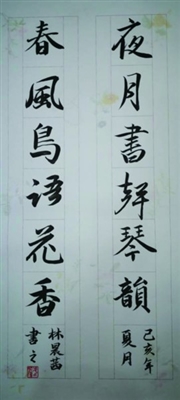 夜月書聲琴韻
己亥年
夏月
春風鳥語花香
林晨茜
書之